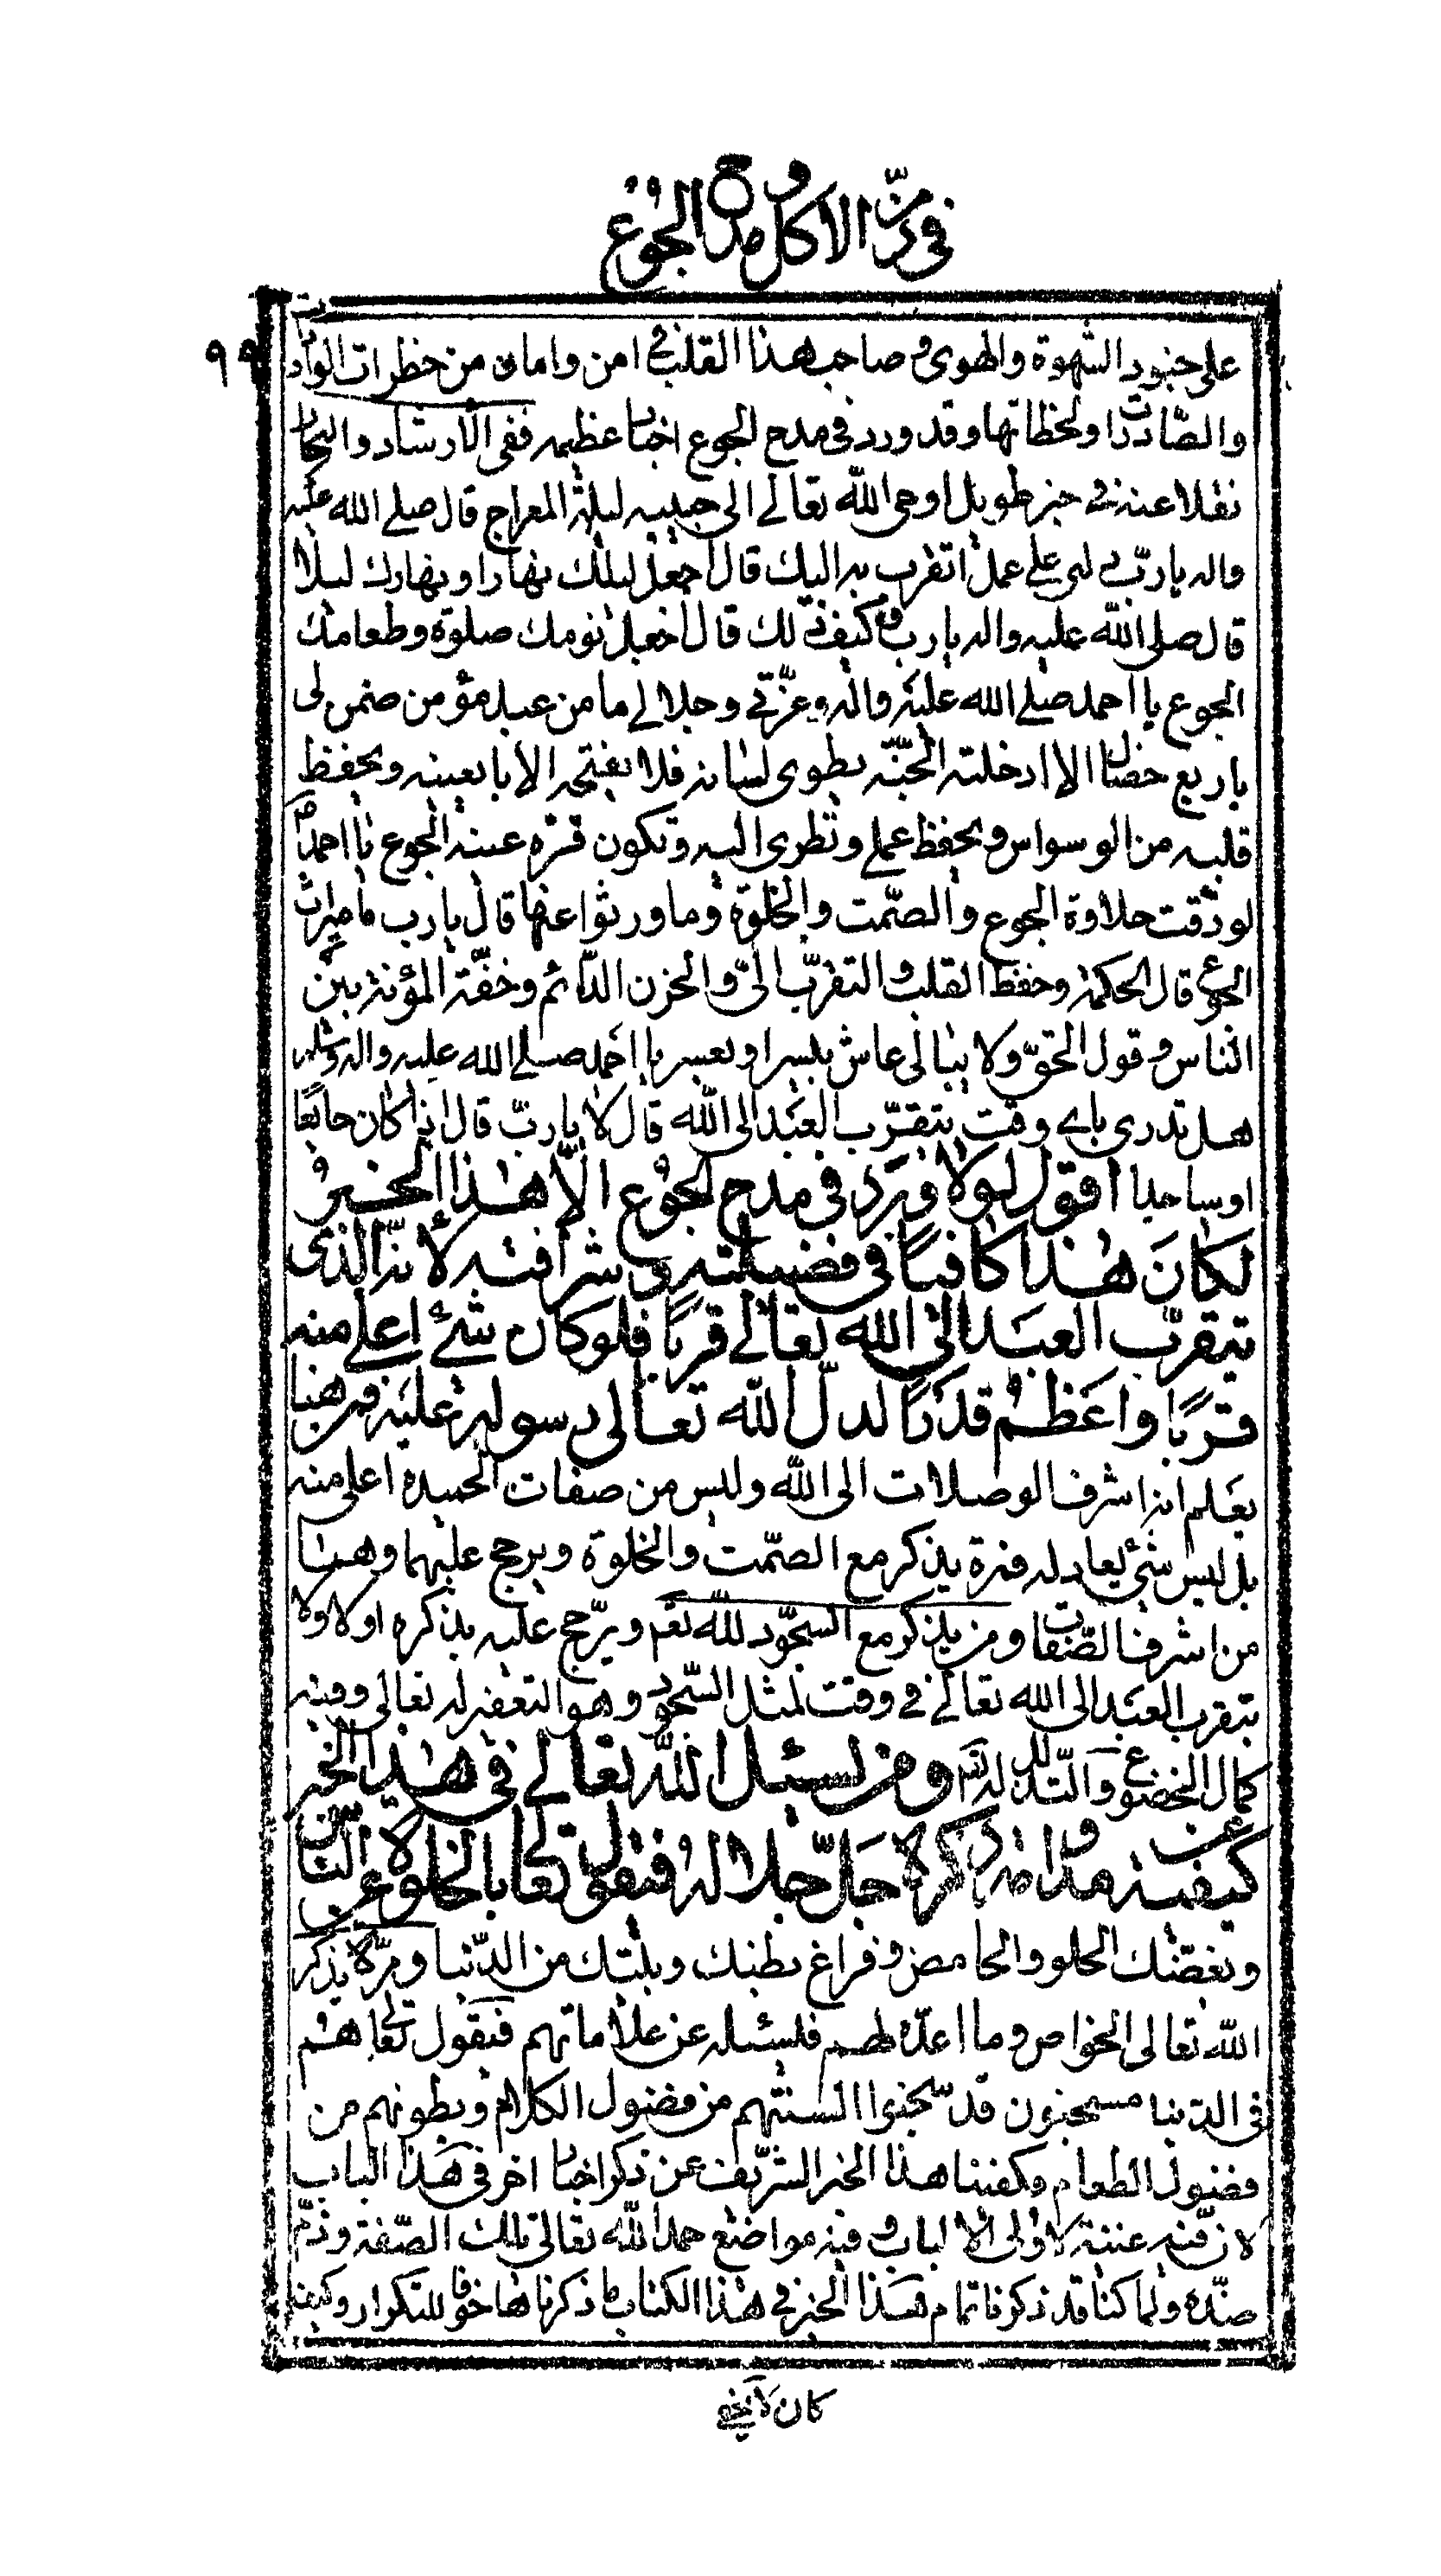 في ذمّ الاكل و مدح الجوع
٩٩
على جنود الشهوة والهوى و صاحب هذا القلب في امن وامان من خطرات الواردات
والصّادرات ولحظاتها وقد ورد في مدح الجوع اخبار عظيمه ففى الارشاد والبحار
نقلا عنه في خبر طويل اوحى الله تعالى الى حبيبه ليلة المعراج قال صلى الله عليه
واله يا ربّ دلنى على عمل اتقرب به اليك قال اجعل ليلك نهارا ونهارك ليلا
قال صلى الله عليه واله يا رب و كيف ذلك قال اجعل نومك صلوة وطعامك
الجوع يا احمد صلى الله عليه واله وعزّتي وجلالي ما من عبد مؤمن ضمن لى
باربع خصال الا ادخلته الجنّه يطوى لسانه فلا يفتحه الا بما يعينه ويحفظ
قلبه من الوسواس ويحفظ علمى ونظرى اليه وتكون قرّه عينه الجوع يا احمد ص
لو ذقت حلاوة الجوع والصّمت والخلوة وما ورثوا عنها قال يا رب ما ميراث
الجوع قال الحكمة وحفظ القلب والتقرّب الىّ والحزن الدّائم وخفّة المؤنة بين
الناس وقول الحقّ ولا يبالى عاش بيسر او بعسر يا احمد صلى الله عليه واله وسلم
هل تدرى باى وقت يتقرّب العبد الى الله قال لا يا ربّ قال اذا كان جايعا
او ساجدا اقول لو لا ورد في مدح الجوع الّا هذا الخبر
لكان هذا كافيا في فضيلته و شرافته لانه الذى
يتقرّب العبد الى الله تعالى قربا فلو كان شئ اعلى منه
قربا واعظم قدرا لدلّ الله تعالى رسوله عليه فمن هنا
يعلم انه اشرف الوصلات الى الله وليس من صفات الحميدة اعلى منه
بل ليس شئ يعادله فمرة يذكر مع الصّمت والخلوة ويرجح عليهما وهما
من اشرف الصّفات ومرة يذكر مع السجّود لله تعم ويرّجح عليه بذكره اولا ولا
يتقرب العبد الى الله تعالى في وقت لمثل السّجود وهو التعفير له تعالى وفيه
كمال الخضوع والتّذلل له تعم ومن يسئل الله تعالى في هذا الخبر
كيفية مداومة ذكره جلّ جلاله فيقول تعالى بالخلوة عن النّاس
وبغضك الحلو والحامض وفراغ بطنك وبيتك من الدّنيا ومرّة يذكر
الله تعالى الخواص وما اعدّه لهم فيسئله عن علاماتهم فيقول تعالى هم
فى الدنيا مسجونون قد سجنوا السنتهم من فضول الكلام وبطونهم من
فضول الطعام وكفينا هذا الخبر الشّريف عن ذكر اخبار اخر في هذا الباب
لان فيه غنية لاولى الالباب و فيه مواضع حمد الله تعالى تلك الصّفة وذمّ
ضدّه ولما كنا قد ذكرنا تمام هذا الخبر في هذا الكتاب ما ذكرناها خوفا للتكرار وكيف
كان لا يخفى